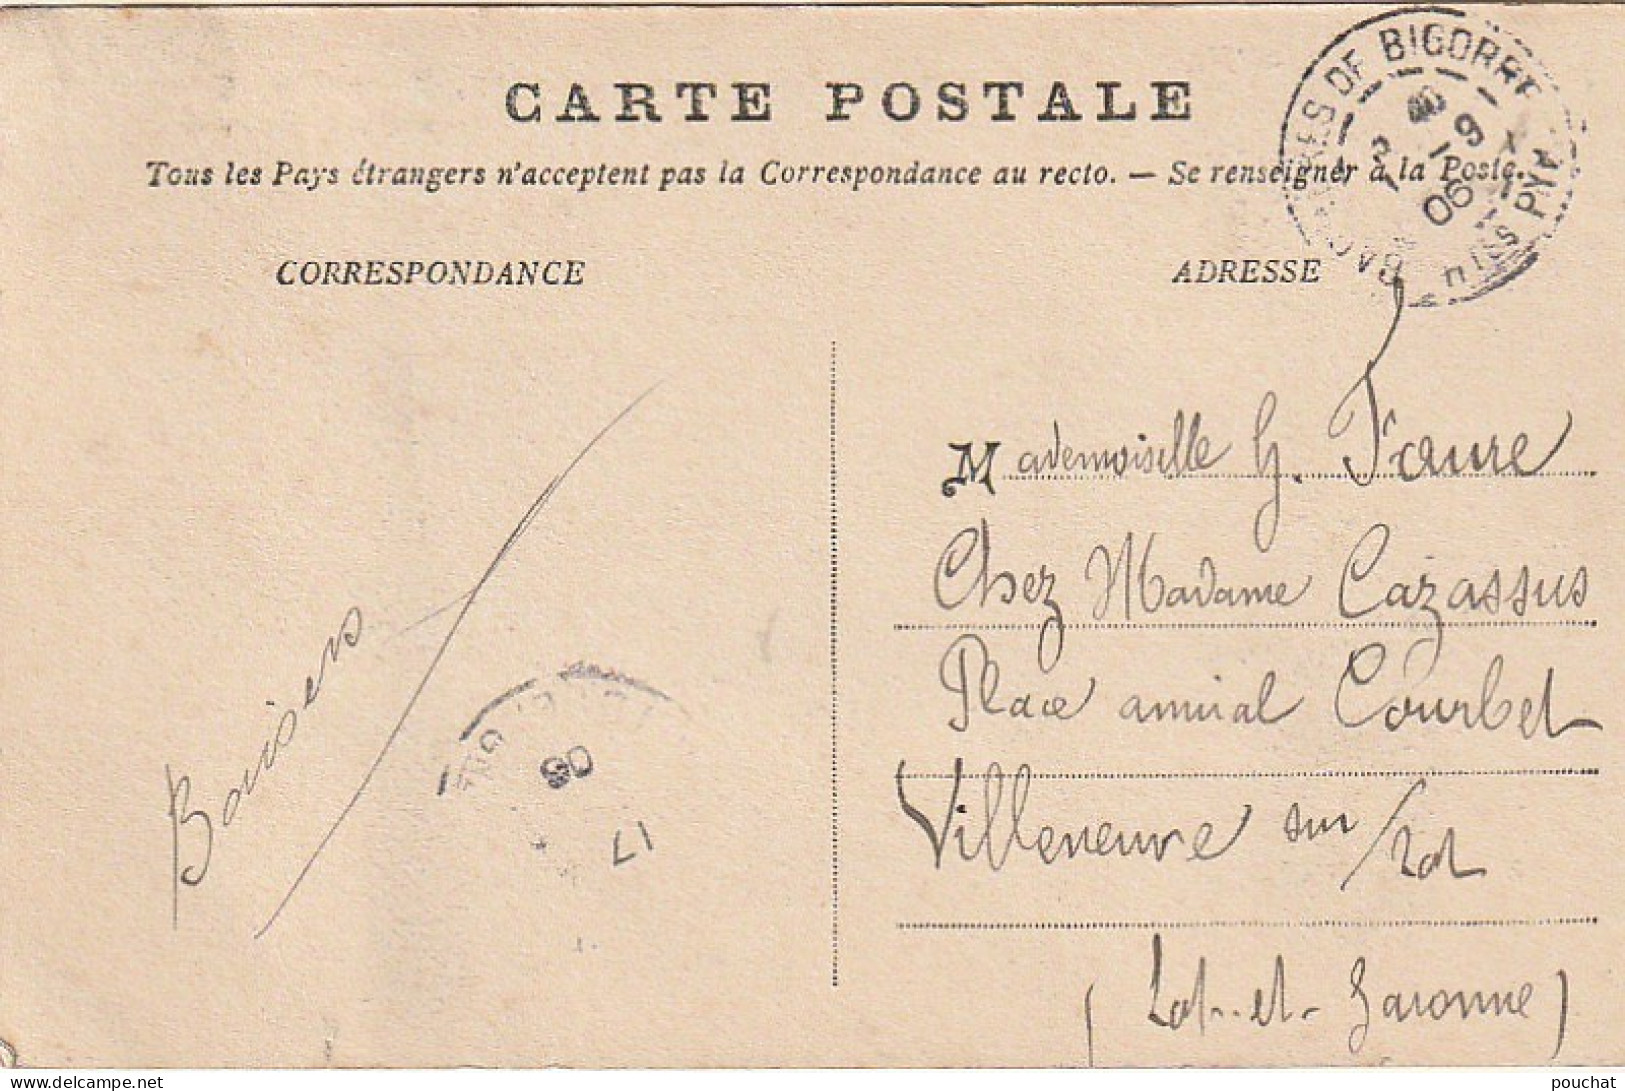 CARTE POSTALE
Tous les Pays étrangers n'acceptent pas la Correspondance au recto. — Se renseigner à la Poste.
BAGNÈRES DE BIGORRE
HTES PYR.
9
06
CORRESPONDANCE
ADRESSE
Baisers
06
17
Mademoiselle G. Faure
Chez Madame Cazassus
Place amiral Courbet
Villeneuve sur/Lot
(Lot-et-Garonne)
delcampe.net
pouchat